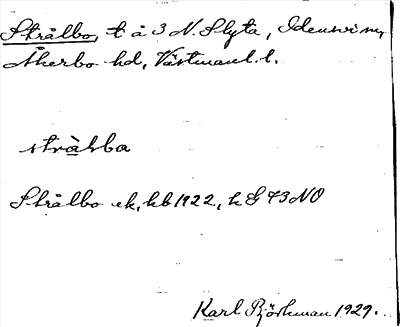 Strålbo, t å 3 N. Slyta, Odensvi sn,
Åkerbo hd, Västmanl. l.
stràɩba
Strålbo ek, kb 1922, k G 73 NO
Karl Björkman 1929.